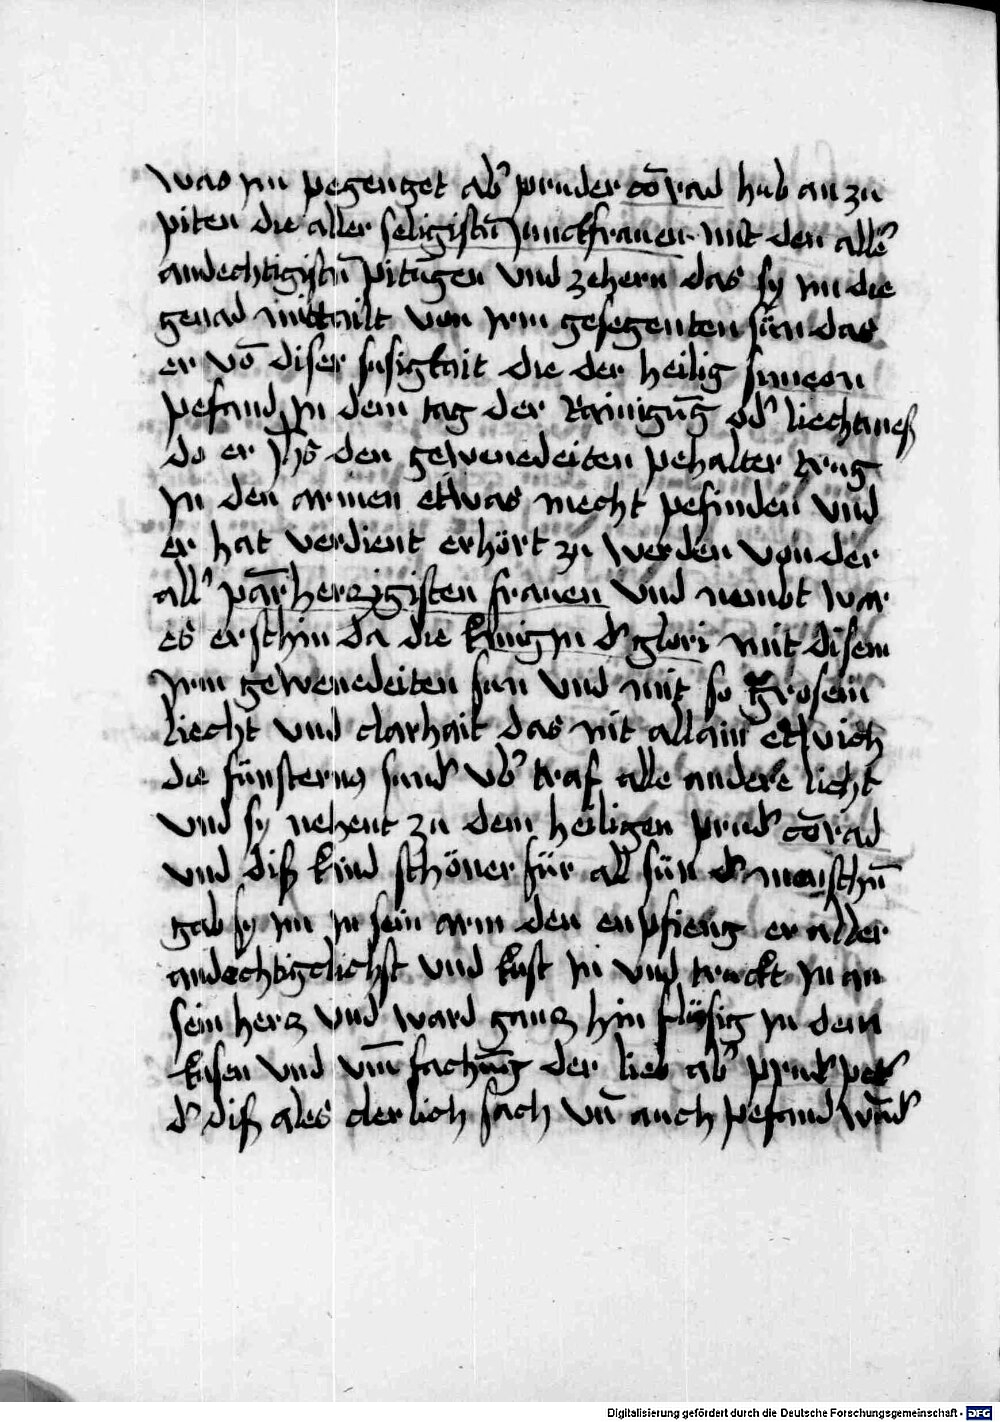 was im pegenget ab̕ pruder cōrad hub an zu
piten die aller seligistn̄ junckfrauen mit den alle̕
andechtigistn̄ pitūgen vnd zehern das sy im die
genad mittailt von irm gesegenten sün das
er vō diser susigkait die der heilig simeon
pefand in dem tag der Rainigūg od̕ liechtmeß
do er jh̄s den gewenedeiten pehalter trug
in den armen etwas mecht pefinden vnd
er hat verdient erhört zu werden von der
all̕ parherczigisten frauen vnd nembt war
es erschin da die künigin d̕ glori mit disem
irm gewenedeiten sun vnd mit so grosem
liecht vnd clarhait das nit allain etlvich
die fünsternus sund̕ vb̕ traf alle andere licht
vnd sy nehent zu dem heiligen prud̕ cōrad
vnd diß kind schöner für all sün d̕ menschn̄
gab sy im in sein arm den enpfieng er aller
andechtigclichst vnd kust in vnd truckt in an
sein hercz vnd ward gancz hin flüsig in dem
kusen vnd vm̄fachūg der lieb ab̕ prud̕ pet̕
d̕ diß ales clerlich sach vn̄ auch pefand wūd̕
Digitalisierung gefördert durch die Deutsche Forschungsgemeinschaft - DFG